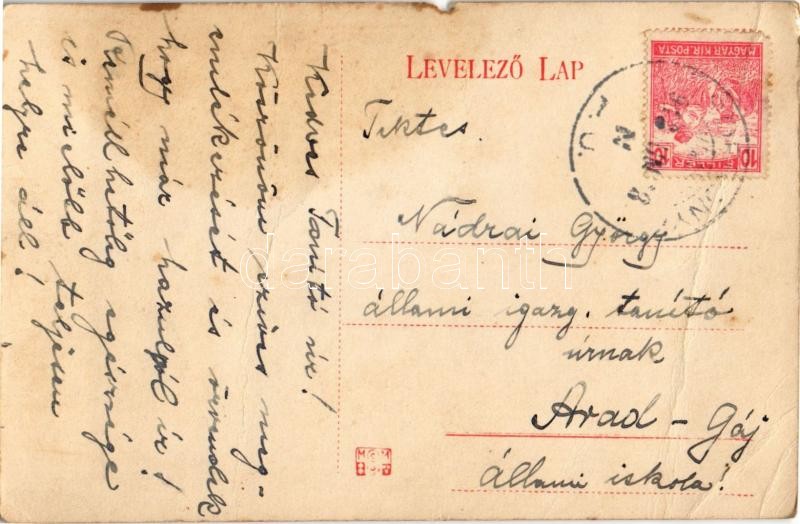 LEVELEZŐ LAP
MAGYAR KIR. POSTA
10 FILLÉR 10
Tektes.
Nádrai György
állami igazg. tanító
úrnak
Arad – Gáj
állami iskola!
Kedves Tanító úr!
Köszönöm szíves meg-
emlékezését és örvendek
hogy már hazulról ír!
Remélhetőleg egészsége
is mielőbb teljesen
helyre áll!
darabanth